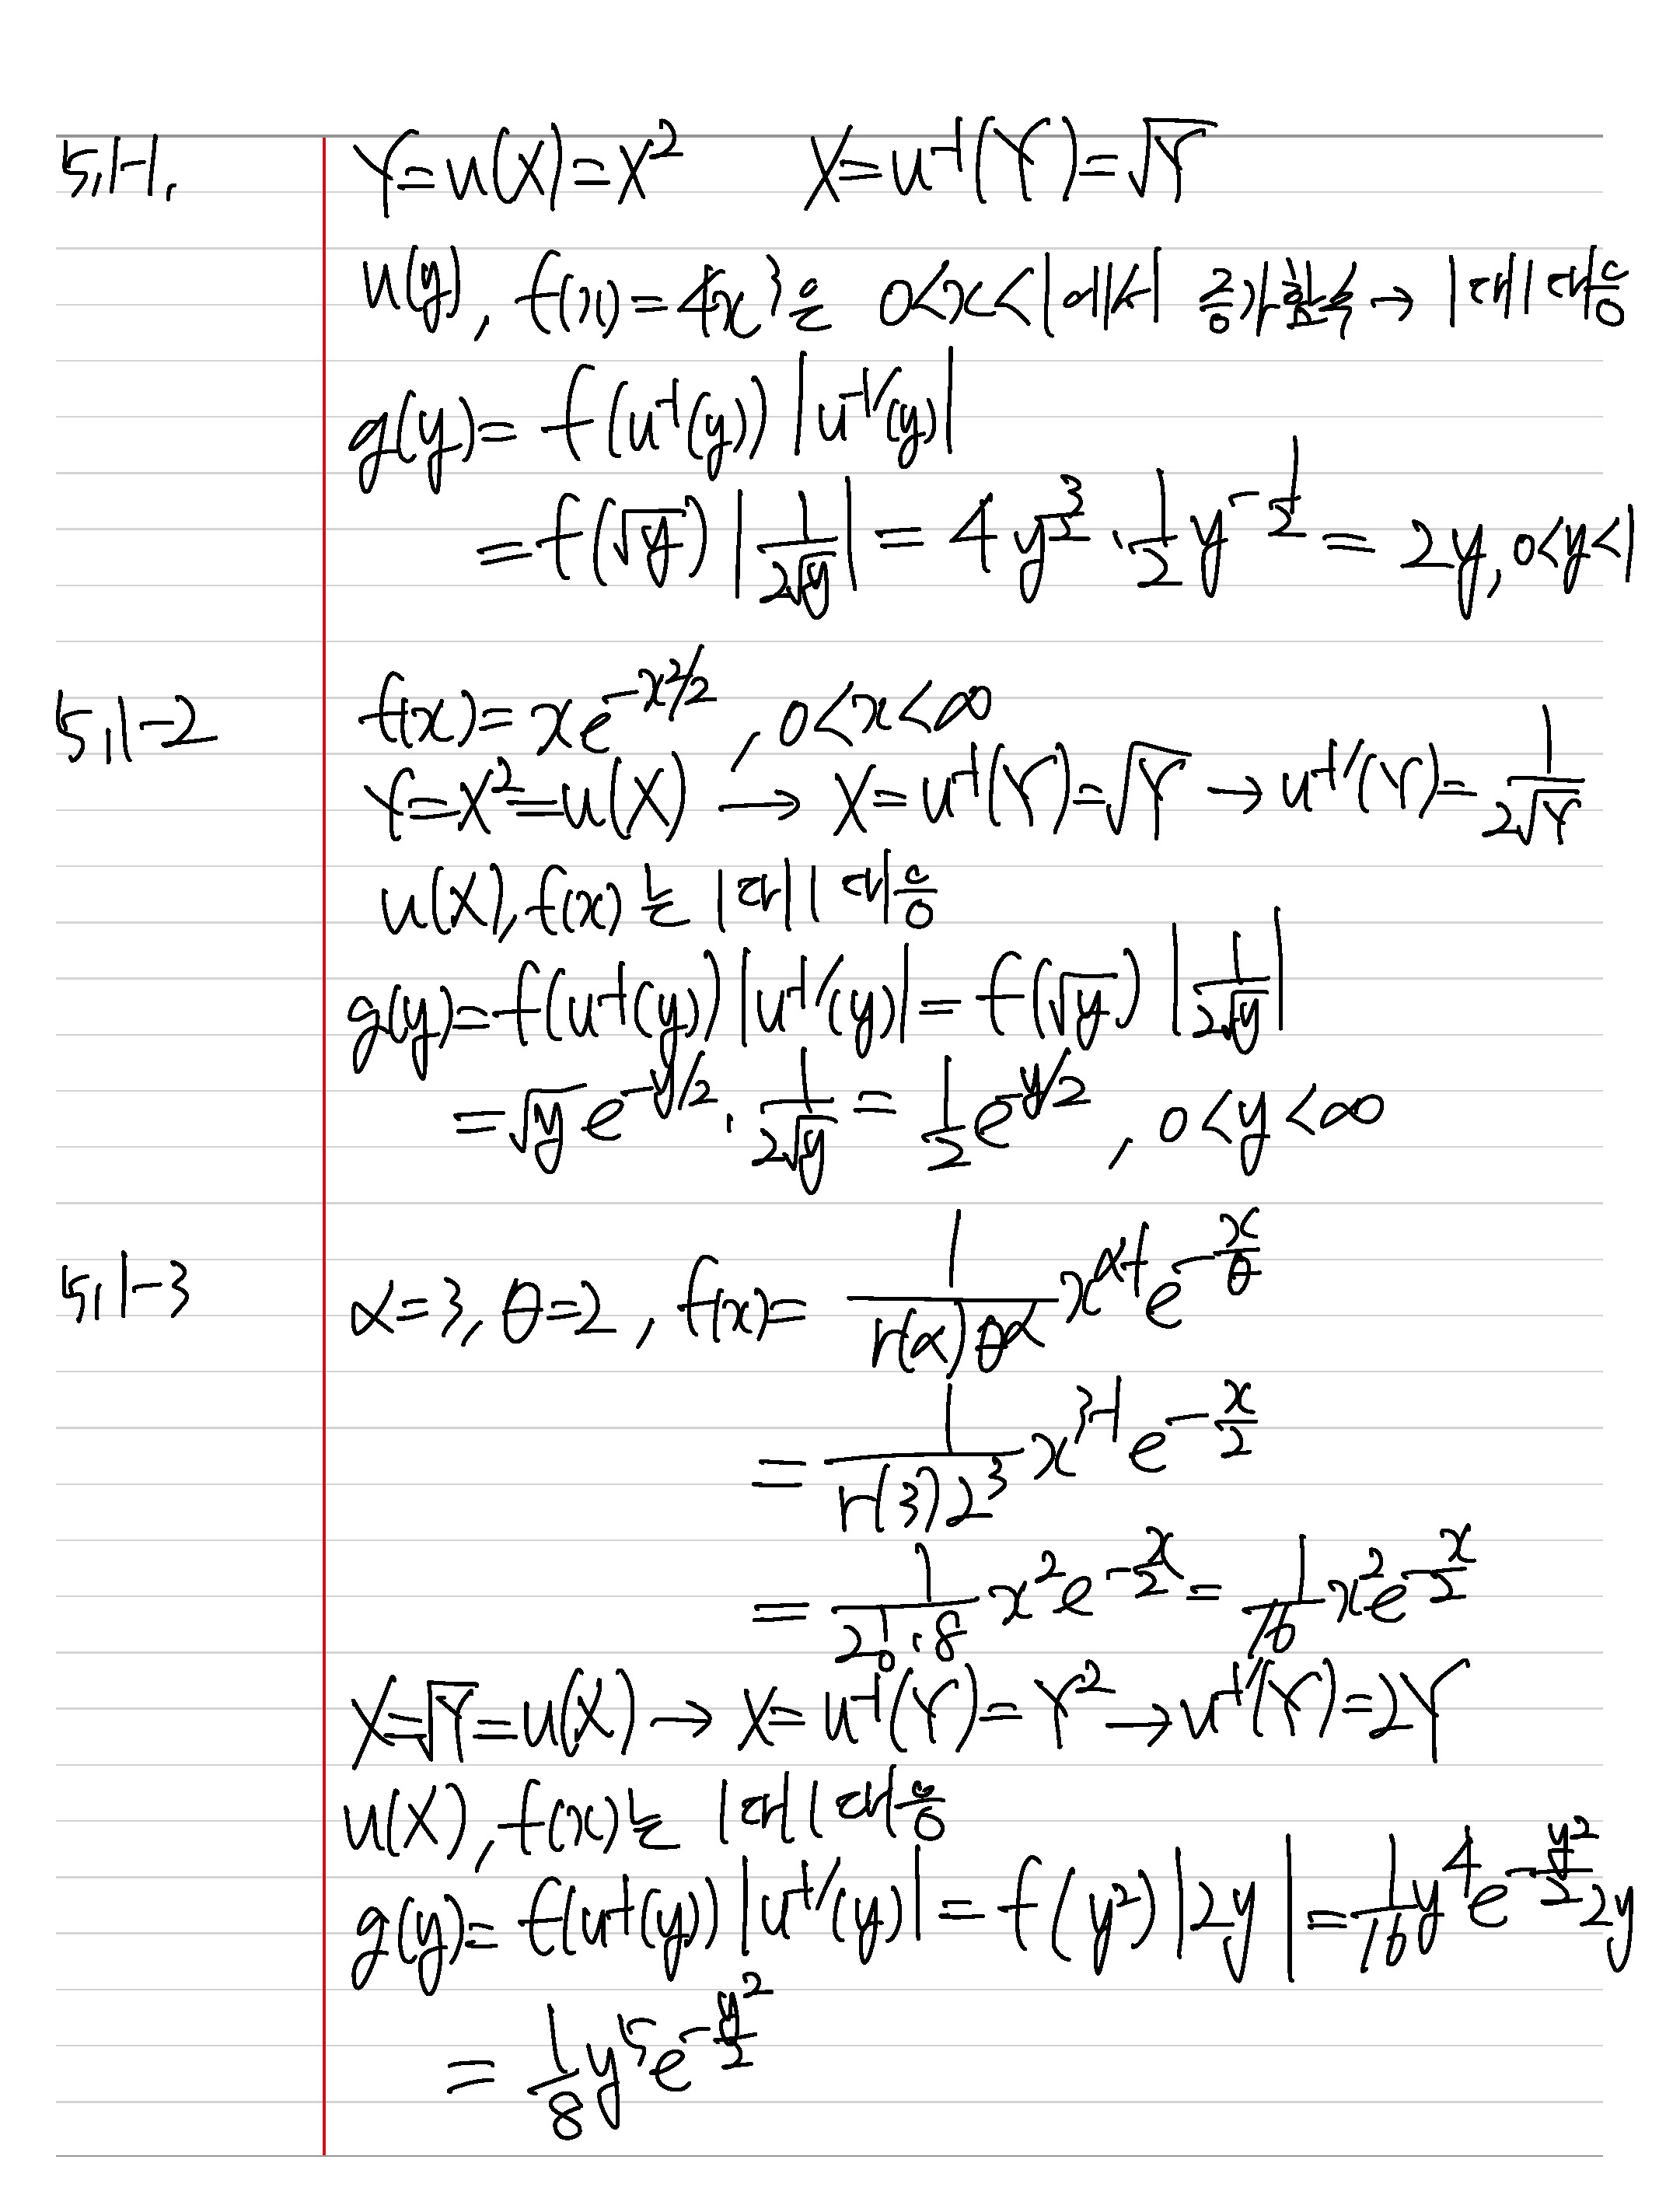 5.1-1. Y=u(X)=X² X=u⁻¹(Y)=√Y
u(y), f(x)=4x³은 0<x<1에서 증가함수→1대1대응
g(y)=f(u⁻¹(y))|u⁻¹′(y)|
=f(√y)|1/(2√y)|=4y^(3/2)·(1/2)y^(-1/2)=2y, 0<y<1
5.1-2 f(x)=xe^(-x²/2), 0<x<∞
Y=X²=u(X)→X=u⁻¹(Y)=√Y→u⁻¹′(Y)=1/(2√Y)
u(X), f(x)는 1대1대응
g(y)=f(u⁻¹(y))|u⁻¹′(y)|=f(√y)|1/(2√y)|
=√y e^(-y/2)·1/(2√y)=(1/2)e^(-y/2), 0<y<∞
5.1-3 α=3, θ=2, f(x)=1/(Γ(α)θ^α) x^(α-1)e^(-x/θ)
=1/(Γ(3)2³) x^(3-1)e^(-x/2)
=1/(2!·8) x²e^(-x/2)=(1/16)x²e^(-x/2)
X=√Y=u(X)→X=u⁻¹(Y)=Y²→u⁻¹′(Y)=2Y
u(X), f(x)는 1대1대응
g(y)=f(u⁻¹(y))|u⁻¹′(y)|=f(y²)|2y|=(1/16)y⁴e^(-y²/2)2y
=(1/8)y⁵e^(-y²/2)